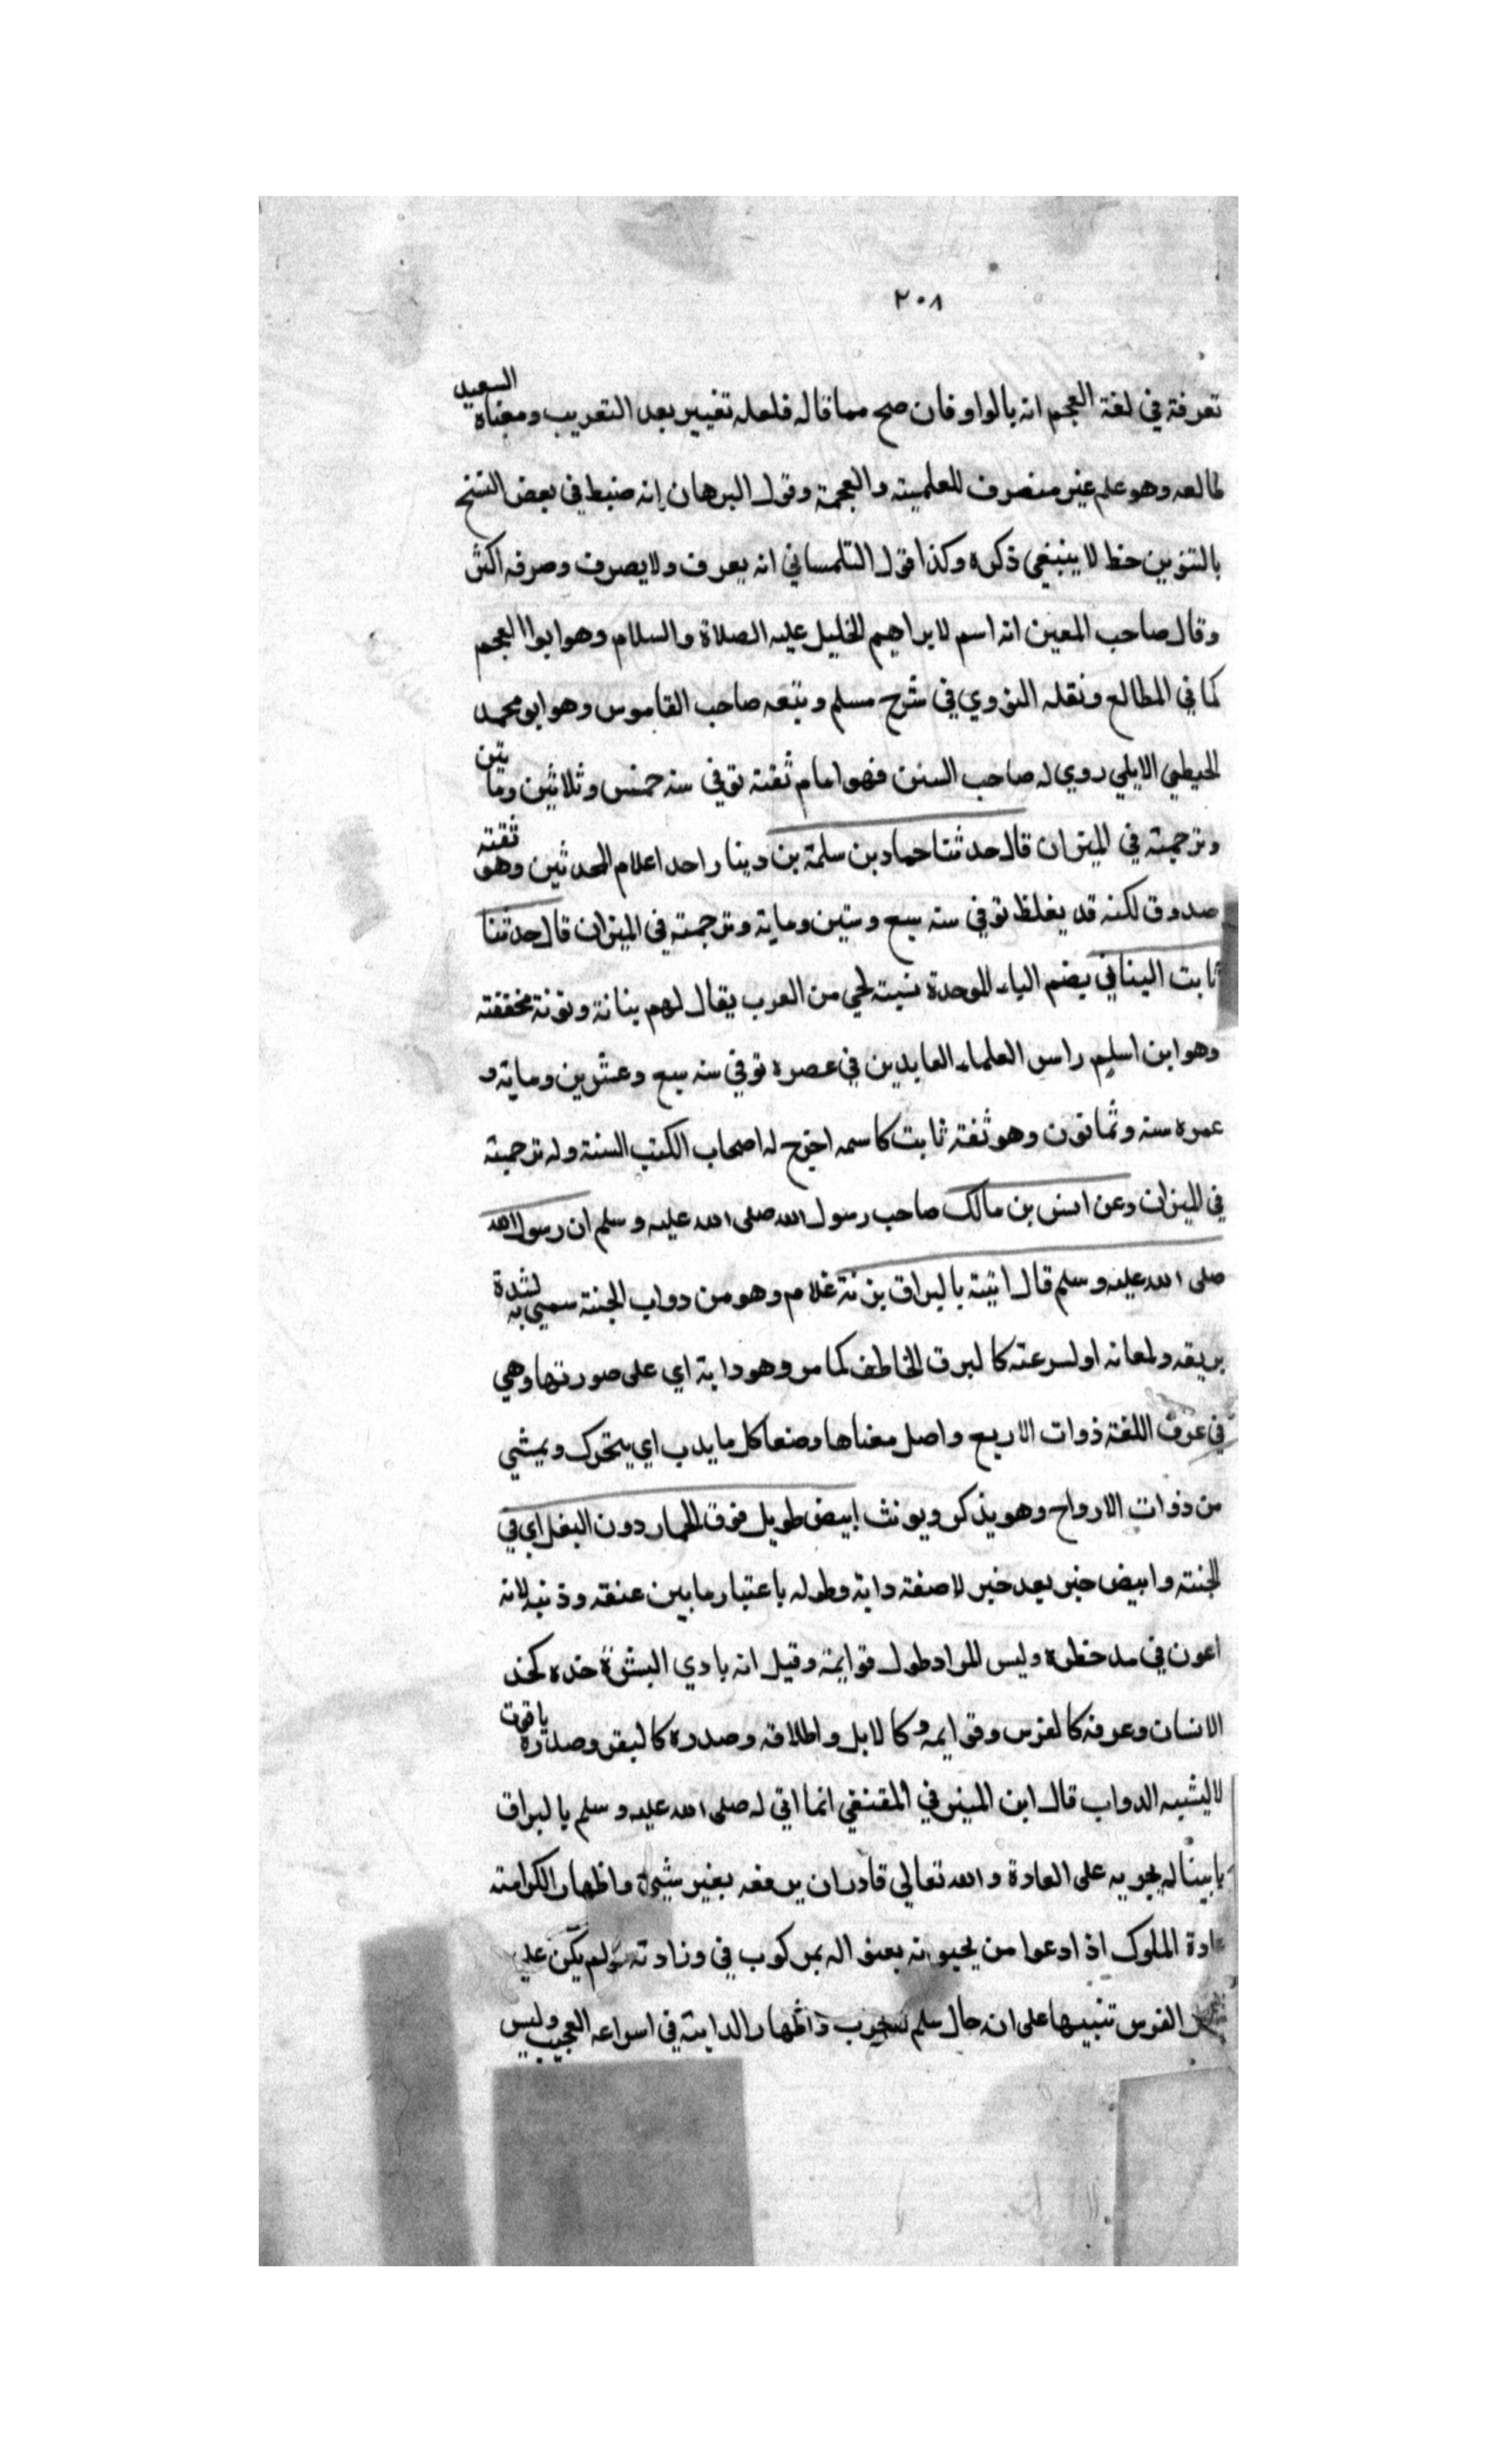 ٢٠٨
تعرفة في لغة العجم انه بالواو فان صح مما قاله فلعله تغيير بعد التعريب ومعناه السعيد
طالعه وهو علم غير منصرف للعلمية والعجمة وقول البرهان إنه ضبط في بعض النسخ
بالتنوين خط لا ينبغي ذكره وكذا قول التلمساني انه يعرف ولا يصرف وصرفه اكثر
وقال صاحب المعين انه اسم لابراهيم الخليل عليه الصلاة والسلام وهو ابوا العجم
كما في المطالع ونقله النووي في شرح مسلم وتبعه صاحب القاموس وهو ابو محمد
الحيطي الايلي روي له صاحب السنن فهو امام ثقته توفي سنه خمس وثلاثين وماتين
وترجمته في الميزان قال حدثنا حماد بن سلمة بن دينار احد اعلام المحدثين وهو ثقته
صدوق لكنه قد يغلظ توفي سنه سبع وستين وماية وترجمته في الميزان قال حدثنا
ثابت البناني بضم الباء الموحدة نسبته لحي من العرب يقال لهم بنانة ونونة مخففته
وهو ابن اسلم راس العلماء العابدين في عصره توفي سنه سبع وعشرين وماية و
عمره سته وثمانون وهو ثقته ثابت كاسمه اخرج له اصحاب الكتب الستة وله ترجمته
في الميزان وعن انس بن مالك صاحب رسول الله صلى الله عليه وسلم ان رسول الله
صلى الله عليه وسلم قال اتيته بالبراق بزنة غلام وهو من دواب الجنته سمي به لشدة
بريقه ولمعانه او لسرعته كالبرق الخاطف كما مر وهو دابة اي على صورتها وهي
في عرف اللغته ذوات الاربع واصل معناها وضعا كل ما يدب اي يتحرك ويمشي
من ذوات الارواح وهو يذكر ويونث ابيض طويل فوق الحمار دون البغل اي في
الجنته وابيض خبر بعد خبر لا صفته دابة وطوله باعتبار ما بين عنقه وذنبه لانه
اعون في مد خطوه وليس المراد طول قوايمة وقيل انه بادي البشرة خده كخد
الانسان وعرفه كالفرس وقوايمه كالابل واظلافه وصدره كالبقر وصدره ياقوت
لا يشبه الدواب قال ابن المنير في المقتفي انما اتي له صلى الله عليه وسلم بالبراق
يابينا له بجريه على العادة والله تعالي قادر ان يرفعه بغير شيئ واظهار الكرامته
عادة الملوك اذا دعوا من يحبونه بعثوا اله بمركوب في وفادته ولم يكن علي
الفرس تنبيها على ان حال سلم لحرب واظهار الداية في اسراعه العجيب وليس